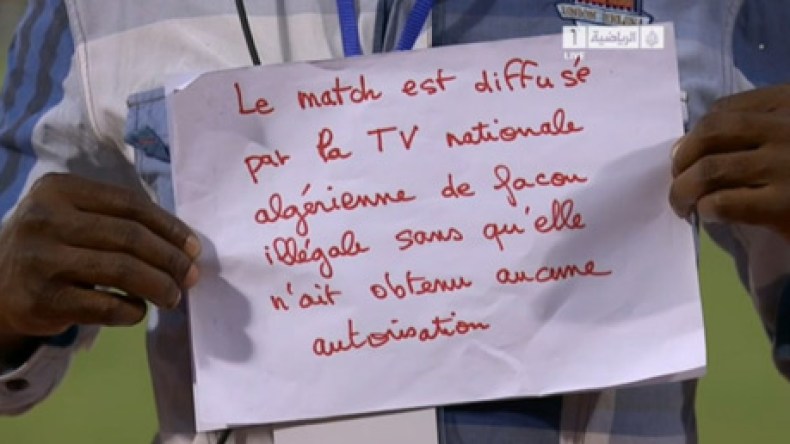 Le match est diffusé
par la TV nationale
algérienne de facon
illégale sans qu'elle
n'ait obtenu aucune
autorisation
الرياضية
LIVE